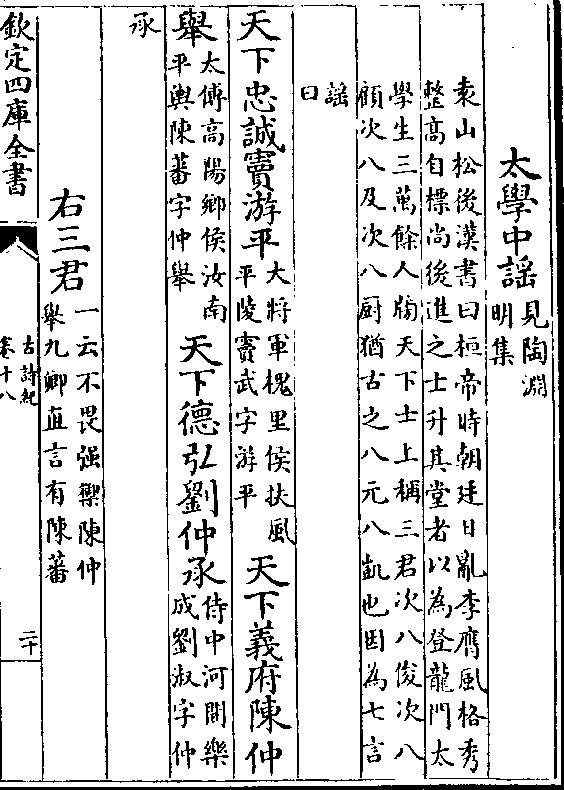 太學中謡見陶淵
明集
袁山松後漢書曰桓帝時朝廷日亂李膺風格秀
整髙自標尚後進之士升其堂者以為登龍門太
學生三萬餘人牓天下士上稱三君次八俊次八
顧次八及次八厨猶古之八元八凱也因為七言
謡
曰
天下忠誠竇游平大將軍槐里侯扶風
平陵竇武字游平天下義府陳仲
舉太傅高陽鄉侯汝南
平輿陳蕃字仲舉天下德弘劉仲承侍中河間樂
成劉淑字仲
承
右三君一云不畏强禦陳仲
舉九卿直言有陳蕃
欽定四庫全書
古詩紀
卷十八
二十